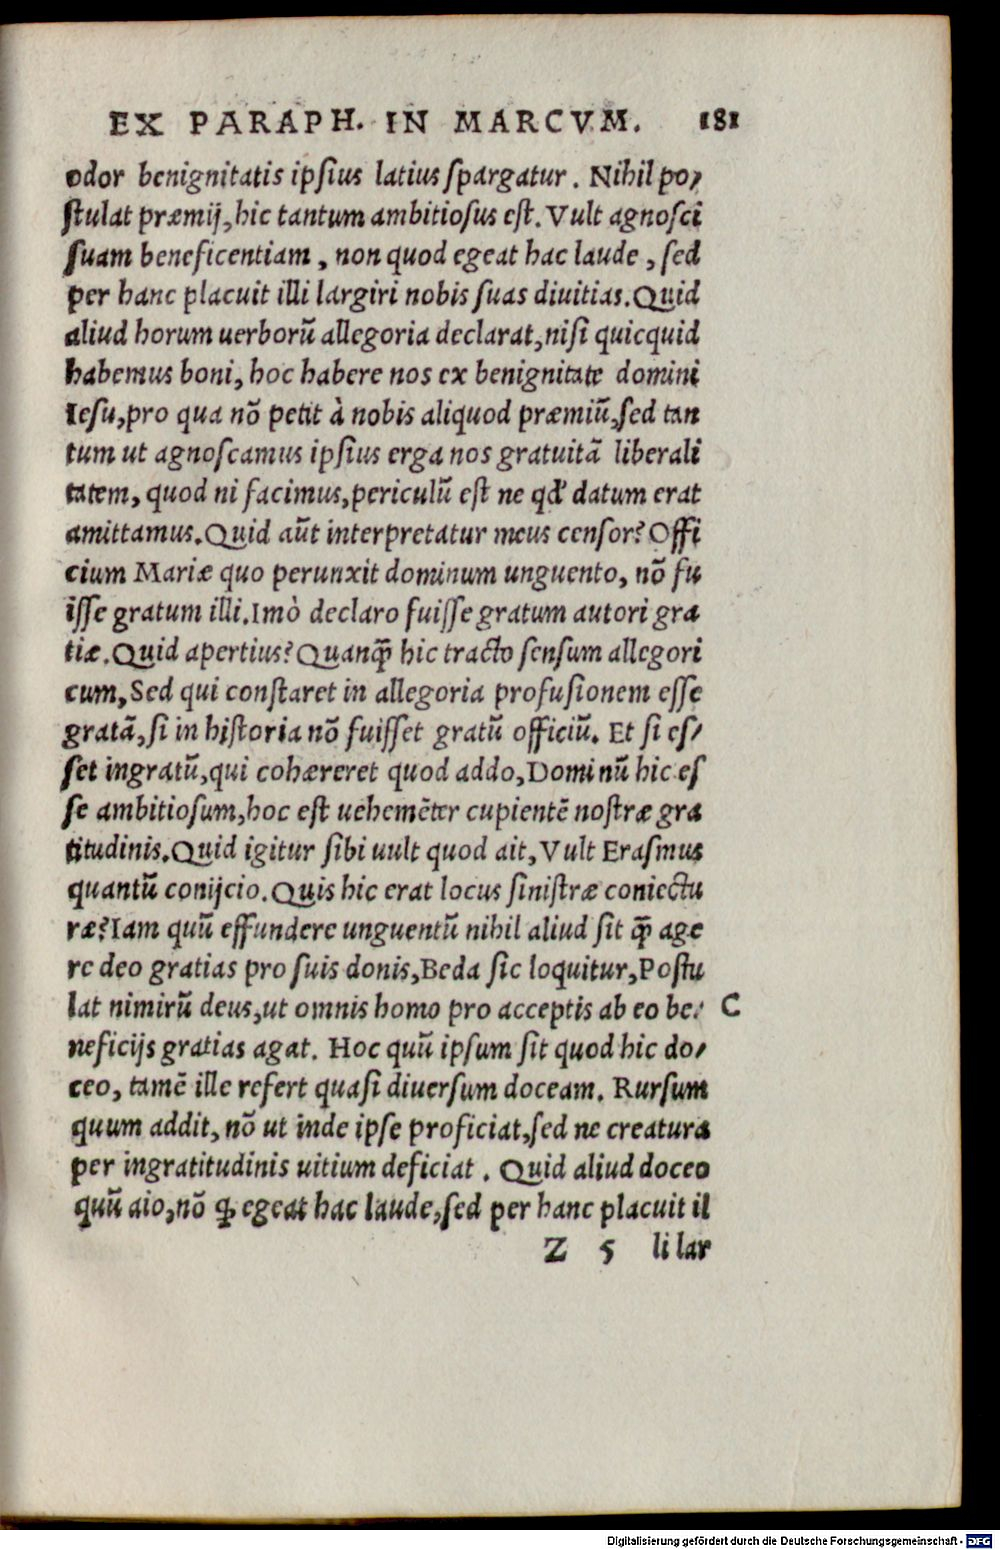 EX PARAPH. IN MARCVM. 181
odor benignitatis ipsius latius spargatur. Nihil po-
stulat præmij, hic tantum ambitiosus est. Vult agnosci
suam beneficentiam, non quod egeat hac laude, sed
per hanc placuit illi largiri nobis suas diuitias. Quid
aliud horum uerborũ allegoria declarat, nisi quicquid
habemus boni, hoc habere nos ex benignitate domini
Iesu, pro qua nõ petit à nobis aliquod præmiũ, sed tan
tum ut agnoscamus ipsius erga nos gratuitã liberali
tatem, quod ni facimus, periculũ est ne qđ datum erat
amittamus. Quid aũt interpretatur meus censor? Offi
cium Mariæ quo perunxit dominum unguento, nõ fu
isse gratum illi. Imò declaro fuisse gratum autori gra
tiæ. Quid apertius? Quanq̃ hic tracto sensum allegori
cum, Sed qui constaret in allegoria profusionem esse
gratã, si in historia nõ fuisset gratũ officiũ. Et si es-
set ingratũ, qui cohæreret quod addo, Dominũ hic es
se ambitiosum, hoc est uehemẽter cupientẽ nostræ gra
titudinis. Quid igitur sibi uult quod ait, Vult Erasmus
quantũ conijcio. Quis hic erat locus sinistræ coniectu
ræ? Iam quũ effundere unguentũ nihil aliud sit q̃ age
re deo gratias pro suis donis, Beda sic loquitur, Postu
lat nimirũ deus, ut omnis homo pro acceptis ab eo be- C
neficijs gratias agat. Hoc quũ ipsum sit quod hic do-
ceo, tamẽ ille refert quasi diuersum doceam. Rursum
quum addit, nõ ut inde ipse proficiat, sed ne creatura
per ingratitudinis uitium deficiat. Quid aliud doceo
quũ aio, nõ ꝙ egeat hac laude, sed per hanc placuit il
Z 5 li lar
Digitalisierung gefördert durch die Deutsche Forschungsgemeinschaft - DFG